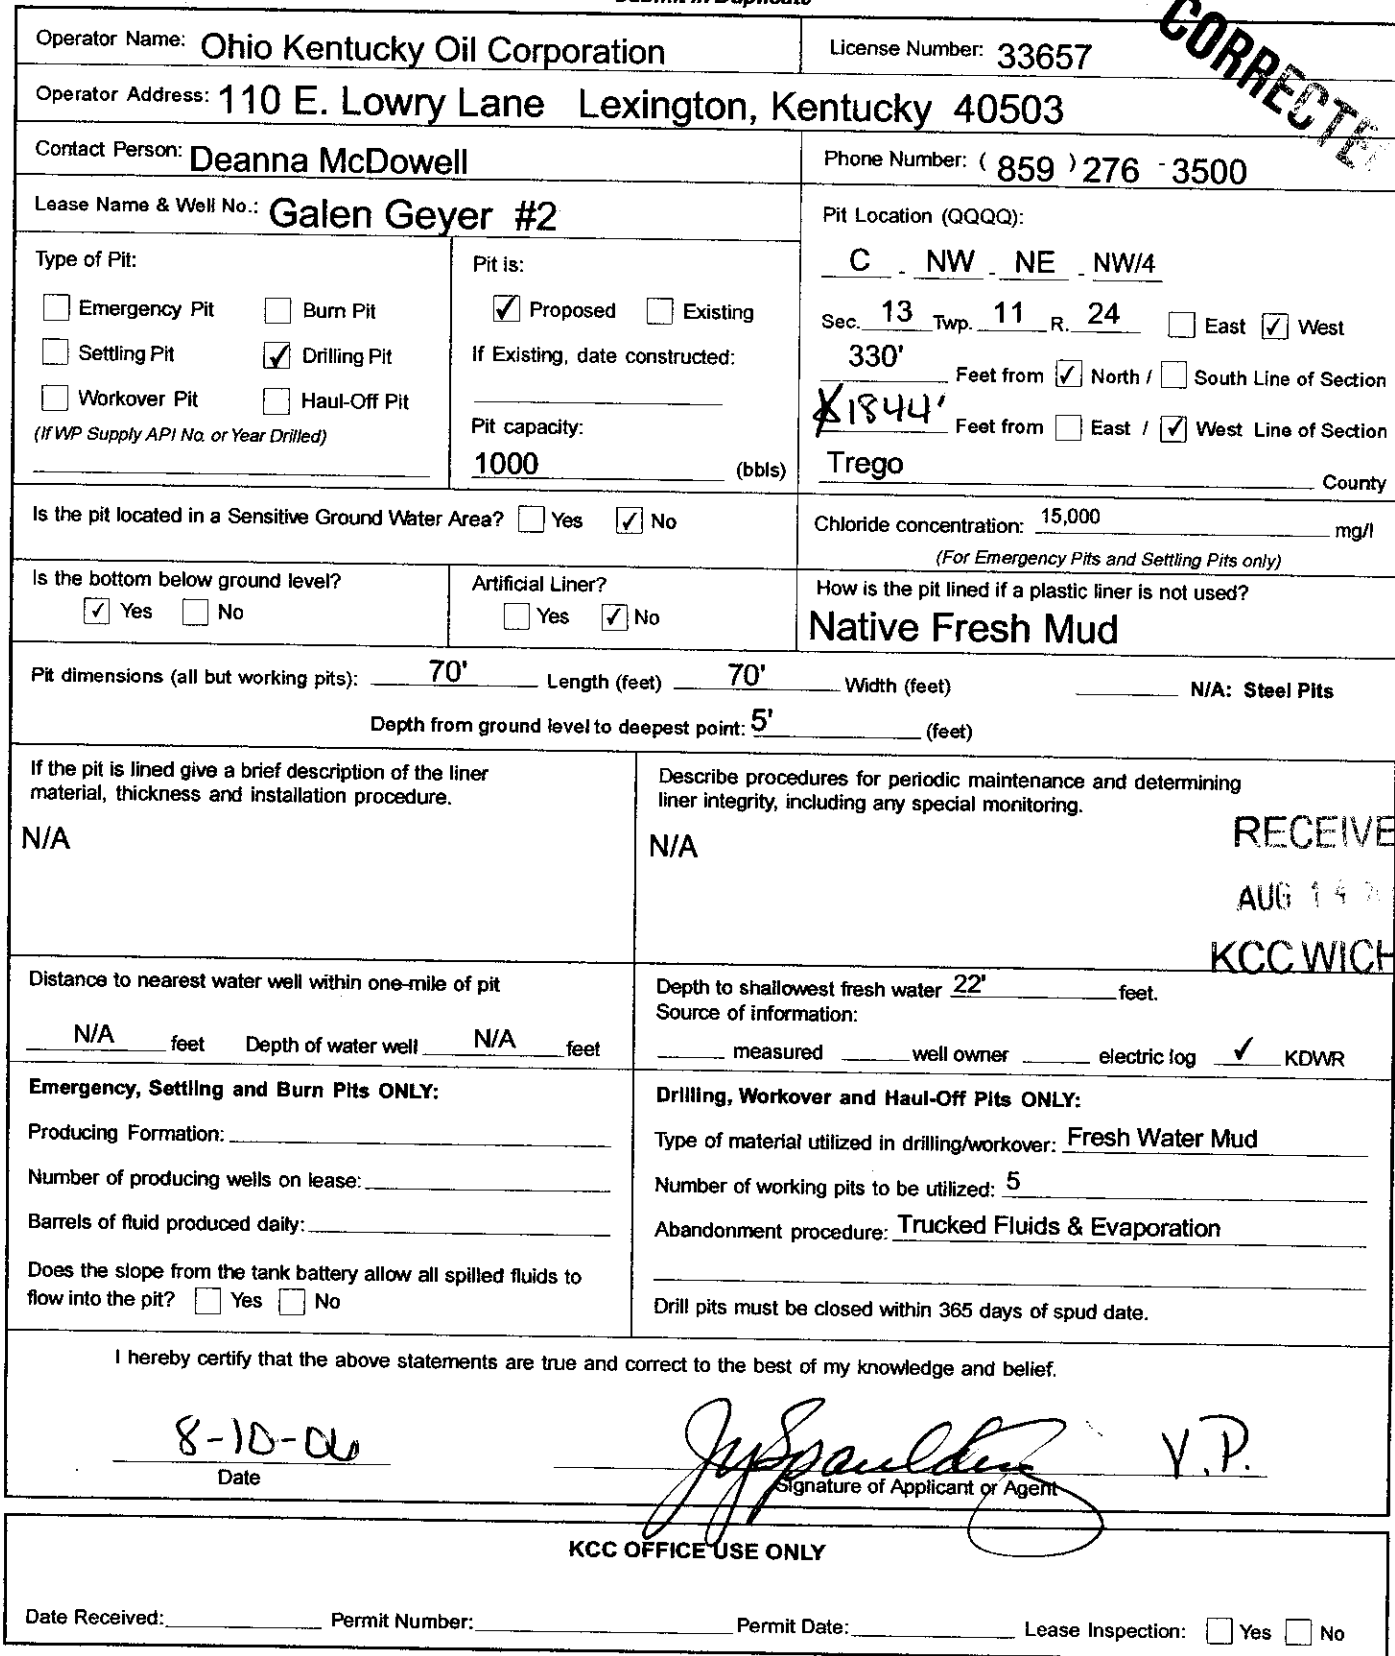 Submit in Duplicate
CORRECTED
Operator Name: Ohio Kentucky Oil Corporation
License Number: 33657
Operator Address: 110 E. Lowry Lane Lexington, Kentucky 40503
Contact Person: Deanna McDowell
Phone Number: ( 859 ) 276 - 3500
Lease Name & Well No.: Galen Geyer #2
Pit Location (QQQQ):
C - NW - NE - NW/4
Type of Pit:
Emergency Pit Burn Pit
Settling Pit ✓ Drilling Pit
Workover Pit Haul-Off Pit
(If WP Supply API No. or Year Drilled)
Pit is:
✓ Proposed Existing
If Existing, date constructed:
Pit capacity:
1000 (bbls)
Sec. 13 Twp. 11 R. 24 East ✓ West
330' Feet from ✓ North / South Line of Section
1844' Feet from East / ✓ West Line of Section
Trego County
Is the pit located in a Sensitive Ground Water Area? Yes ✓ No
Chloride concentration: 15,000 mg/l
(For Emergency Pits and Settling Pits only)
Is the bottom below ground level?
✓ Yes No
Artificial Liner?
Yes ✓ No
How is the pit lined if a plastic liner is not used?
Native Fresh Mud
Pit dimensions (all but working pits): 70' Length (feet) 70' Width (feet) N/A: Steel Pits
Depth from ground level to deepest point: 5' (feet)
If the pit is lined give a brief description of the liner
material, thickness and installation procedure.
N/A
Describe procedures for periodic maintenance and determining
liner integrity, including any special monitoring.
N/A
RECEIVE
AUG 14
KCC WICH
Distance to nearest water well within one-mile of pit
N/A feet Depth of water well N/A feet
Depth to shallowest fresh water 22' feet.
Source of information:
measured well owner electric log ✓ KDWR
Emergency, Settling and Burn Pits ONLY:
Producing Formation:
Number of producing wells on lease:
Barrels of fluid produced daily:
Does the slope from the tank battery allow all spilled fluids to
flow into the pit? Yes No
Drilling, Workover and Haul-Off Pits ONLY:
Type of material utilized in drilling/workover: Fresh Water Mud
Number of working pits to be utilized: 5
Abandonment procedure: Trucked Fluids & Evaporation
Drill pits must be closed within 365 days of spud date.
I hereby certify that the above statements are true and correct to the best of my knowledge and belief.
8-10-06
Date
Spaulding V.P.
Signature of Applicant or Agent
KCC OFFICE USE ONLY
Date Received: Permit Number: Permit Date: Lease Inspection: Yes No